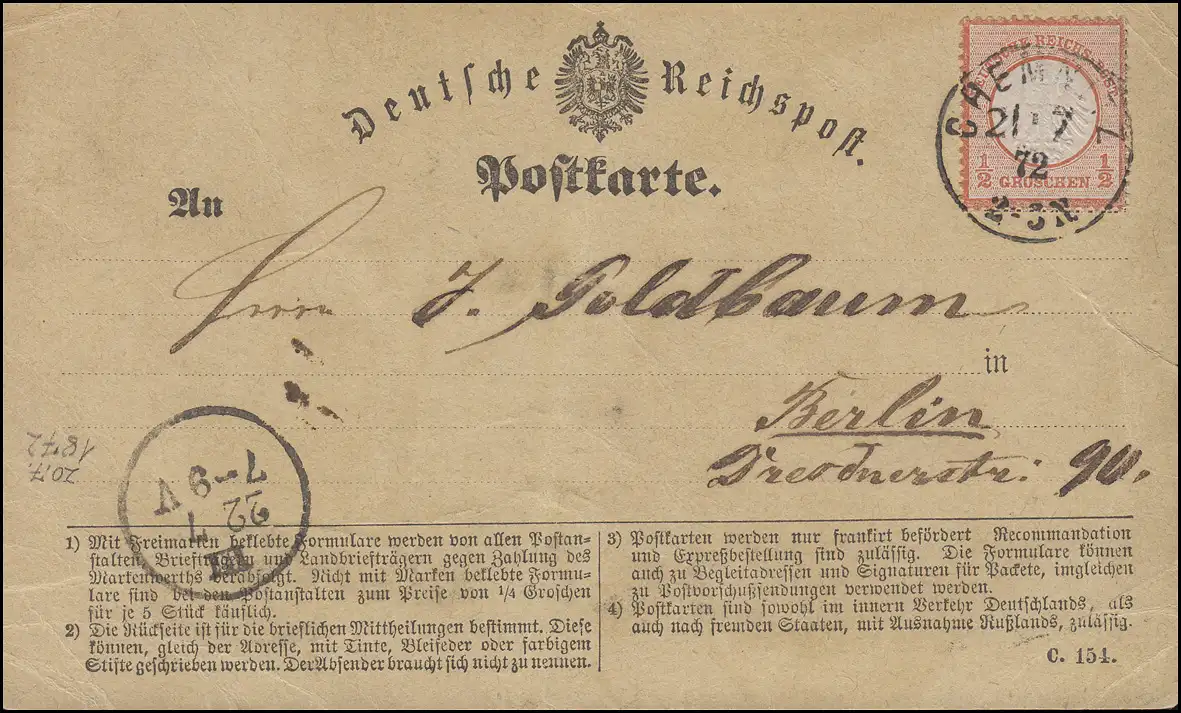 Deutsche Reichspost.
DEUTSCHE REICHS-POST
1/2 GROSCHEN 1/2
21 7
72
2-3N
Postkarte.
An
Herrn J. Goldbaum
in
Berlin
Dresdnerstr: 90.
20/7.
1872
22
7
7-9 V
1) Mit Freimarken beklebte Formulare werden von allen Postan-
stalten, Briefträgern und Landbriefträgern gegen Zahlung des
Markenwerths verabfolgt. Nicht mit Marken beklebte Formu-
lare sind bei den Postanstalten zum Preise von 1/4 Groschen
für je 5 Stück käuflich.
2) Die Rückseite ist für die brieflichen Mittheilungen bestimmt. Diese
können, gleich der Adresse, mit Tinte, Bleifeder oder farbigem
Stifte geschrieben werden. Der Absender braucht sich nicht zu nennen.
3) Postkarten werden nur frankirt befördert Recommandation
und Expreßbestellung sind zulässig. Die Formulare können
auch zu Begleitadressen und Signaturen für Packete, imgleichen
zu Postvorschußsendungen verwendet werden.
4) Postkarten sind sowohl im innern Verkehr Deutschlands, als
auch nach fremden Staaten, mit Ausnahme Rußlands, zulässig.
C. 154.